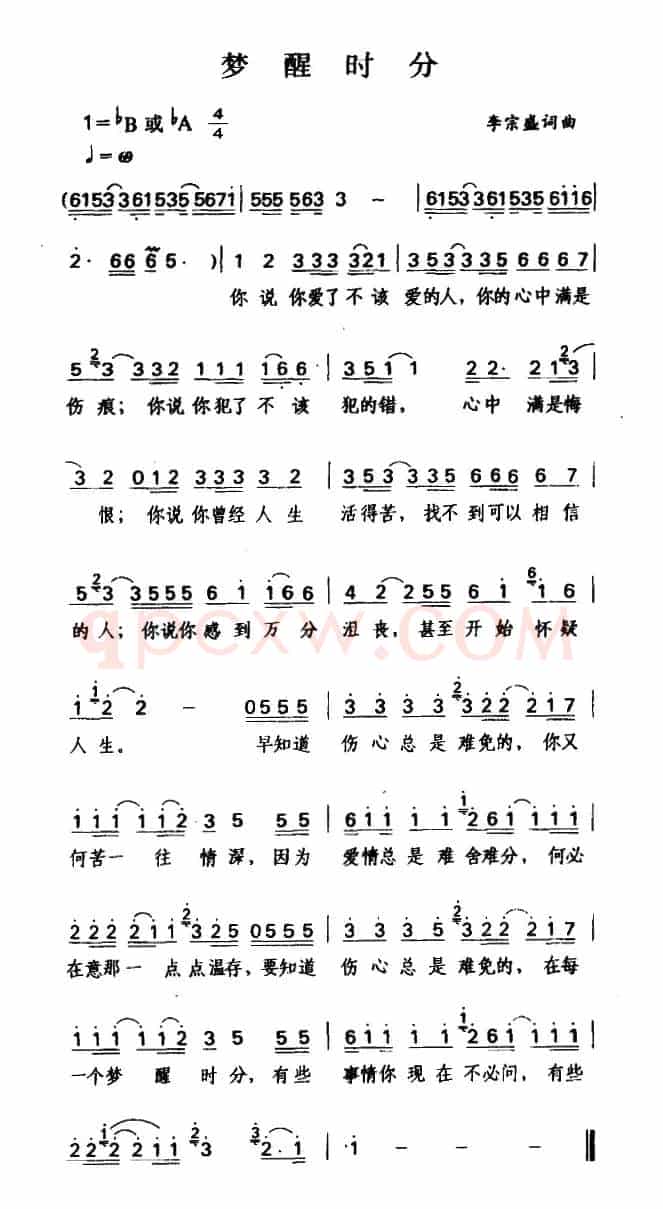 梦醒时分
1=♭B或♭A 4/4
李宗盛词曲
♩=
(6153361535 5671|555 563 3 –|6153361535 6116|
2· 66 6 5· )|1 2 333 321|353335 666 7|
你说你爱了不该 爱的人,你的心中满是
5 2 3 332 111 166|3511 22· 21 2 3|
伤痕;你说你犯了不该 犯的错, 心中 满是悔
3 2 012 333 3 2|353335 666 6 7|
恨;你说你曾经人生 活得苦,找不到可以相信
5 2 3 3555 6 1 166|42 2255 6 1 6 1 6|
的人;你说你感到万分 沮丧,甚至开始怀疑
qpcxw.com
1 1 2 2 – 0555|3 3 3 5 2 3 222 217|
人生。 早知道 伤心总是难免的,你又
111 112 3 5 55|611 1 1 1 261 111|
何苦一往情深,因为 爱情总是难舍难分,何必
222 211 2 325 0555|3 3 3 5 2 322 217|
在意那一点点温存,要知道 伤心总是难免的,在每
111 112 3 5 55|611 1 1 2 261 111|
一个梦醒时分,有些 事情你现在不必问,有些
22 1 2 211 2 3 3 2· 1|1 – – –‖